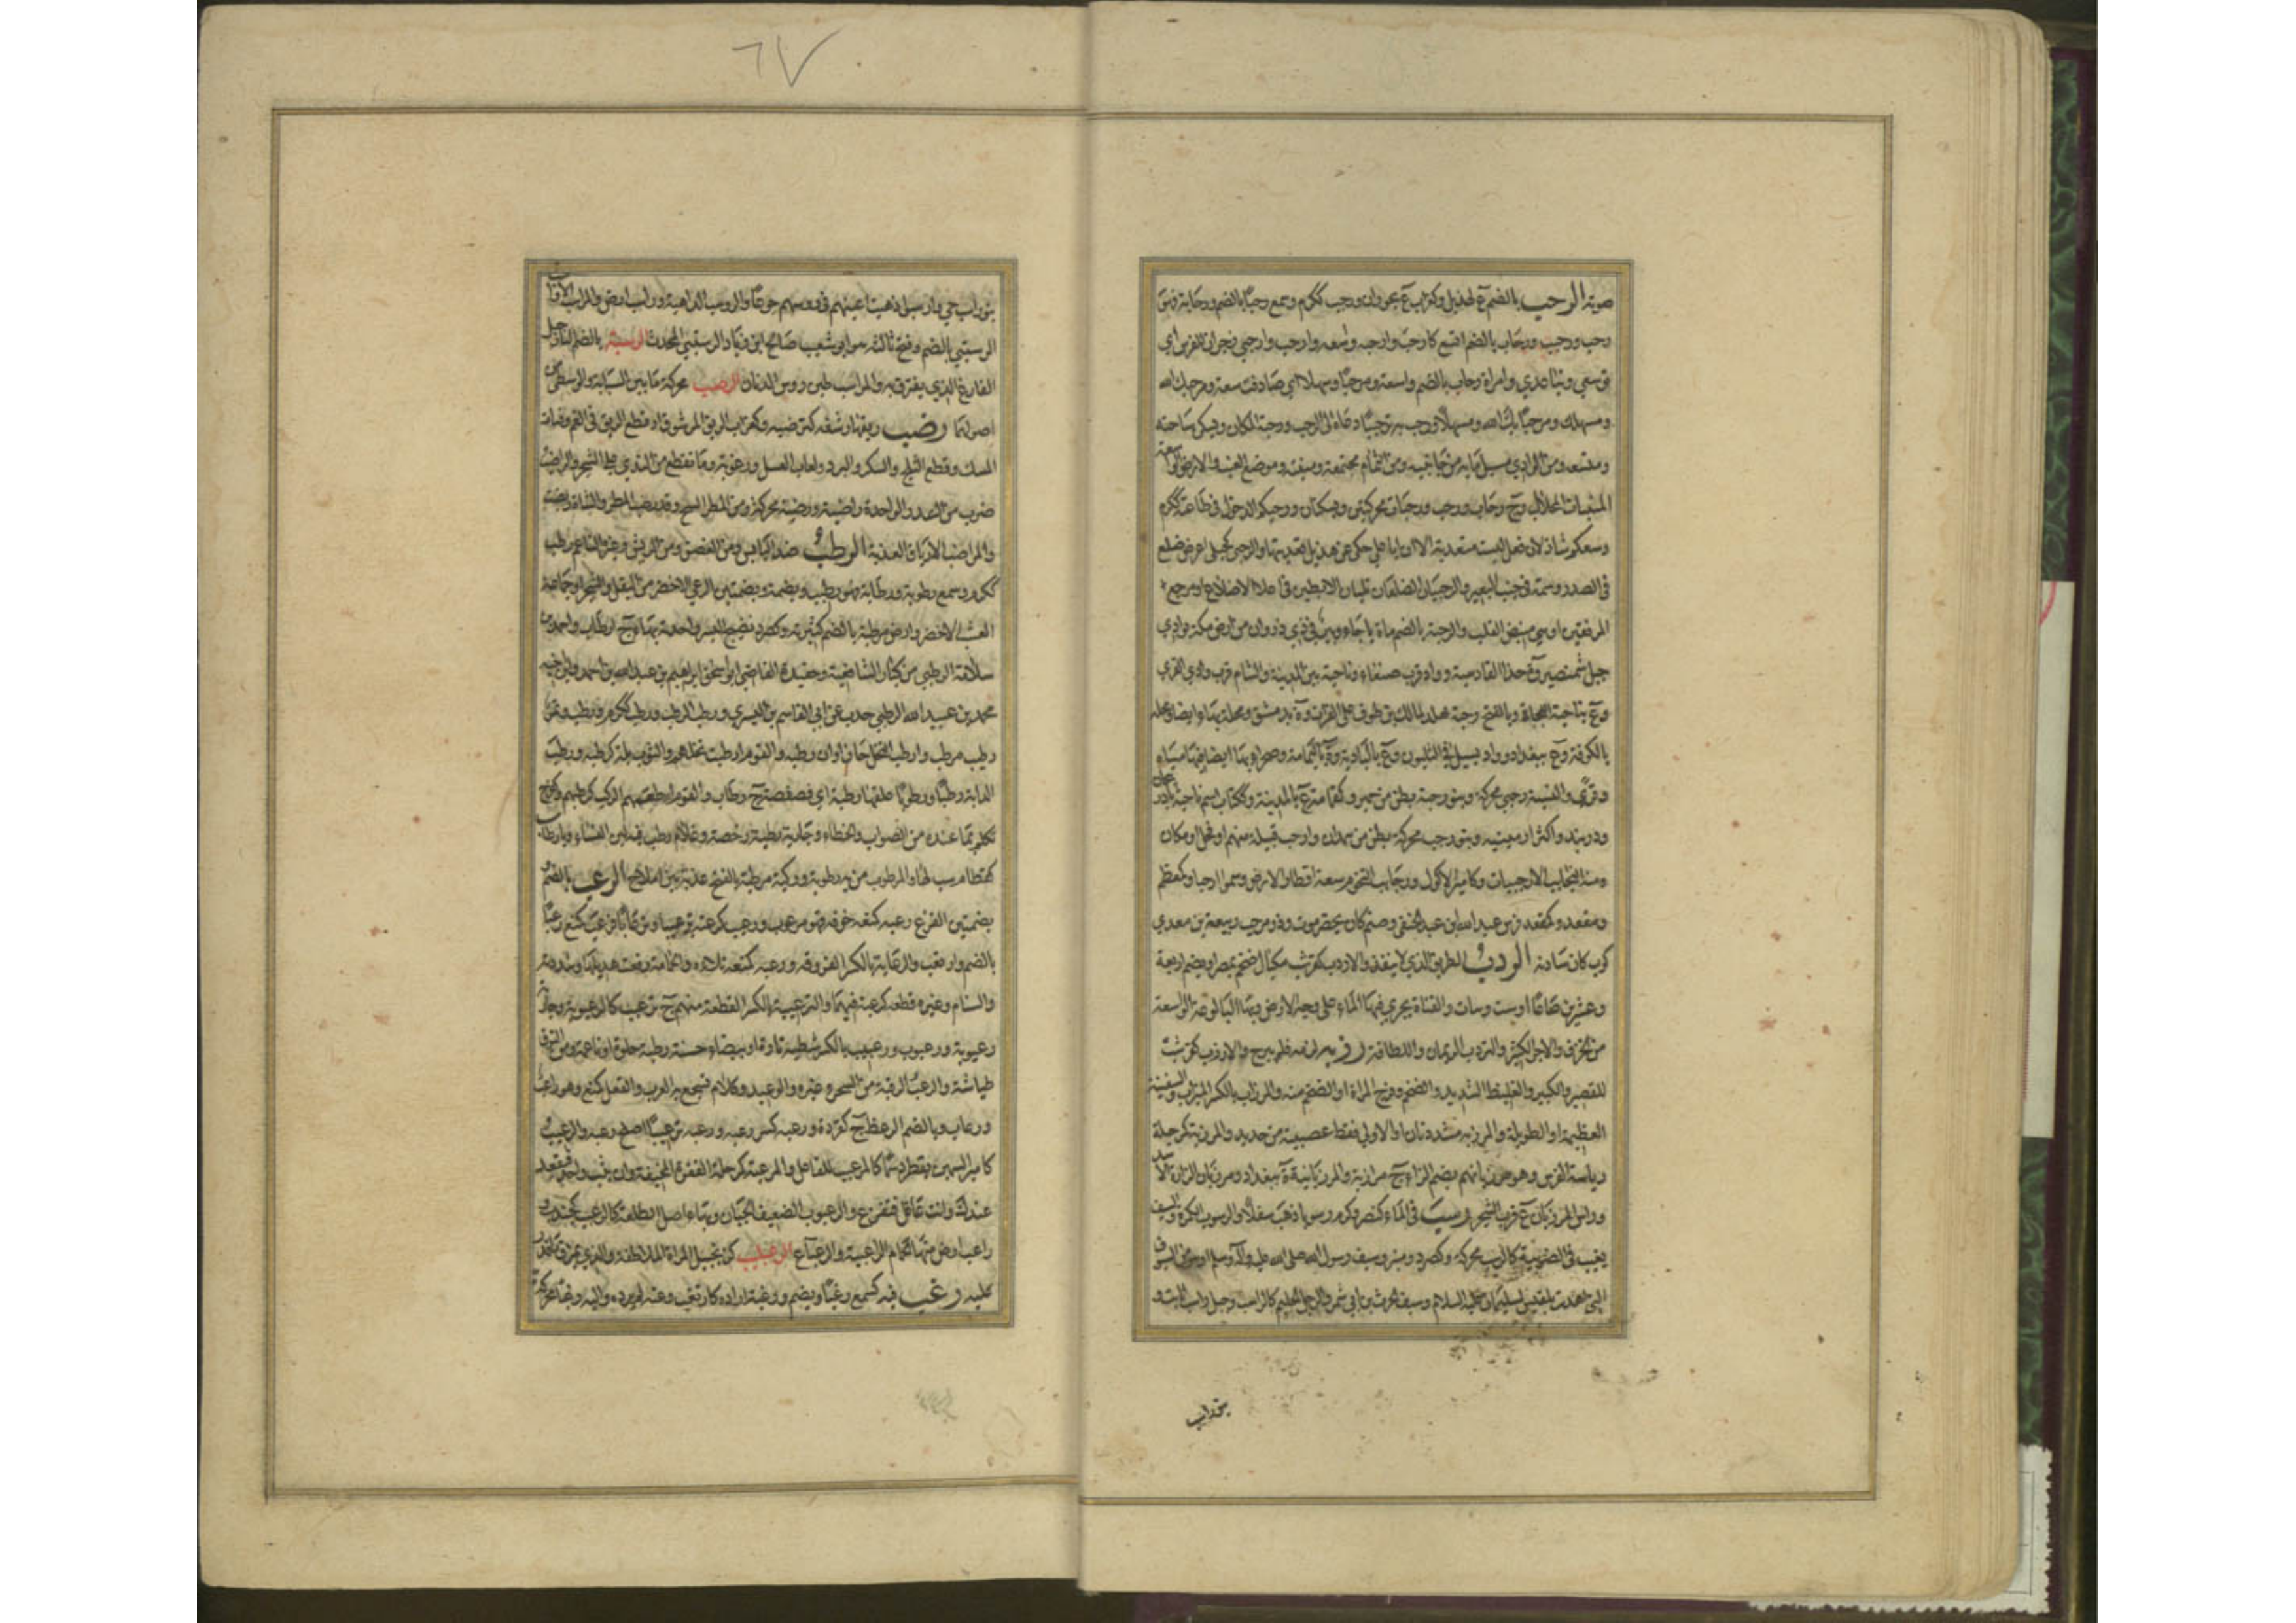 صوته الرحب بالضم ع لهذيل وكغراب ع بحوران ورحب ككرم وسمع رحبا بالضم ورحابة فهو
رحب ورحيب ورحاب بالضم اتسع كارحب وارحبه واسعه وارحب وارحبي زجران للفرس اي
توسعي وتباعدي وامراة رحاب بالضم واسعة ومرحبا وسهلا اي صادفت سعة ومرحبك الله
ومسهلك ومرحبا بك الله ومسهلا ورحب به ترحيبا دعاه الى الرحب ورحبة المكان ويسكن ساحته
ومتسعه ومن الوادي مسيل مائه من جانبيه ومن الثمام مجتمعه ومنبته وموضع العنب والارض الواسعة
المنبات المحلال ج رحاب ورحب ورحبات محركتين ويسكنان ورحبكم الدخول في طاعته ككرم
وسعكم شاذ لان فعل ليست متعدية الا ان ابا علي حكى عن هذيل تعديتها والرحبى كحبلى اعرض ضلع
في الصدر وسمة في جنب البعير والرحبيان الضلعان تليان الابطين في اعلا الاضلاع او مرجع
المرفقين او هي منبض القلب والرحبة بالضم ماة باجاء وبئر في ذي ذروان من ارض مكة بوادي
جبل شمنصير وة حذا القادسية وواد قرب صنعاء وناحية بين المدينة والشام قرب وادي القرى
وع بناحية اللجاة وبالفتح رحبة مالك بن طوق على الفرات وة بدمشق ومحلة بها ايضا ومحلة
بالكوفة وع ببغداد وواد يسيل في الثلبوت وع بالبادية وة باليمامة وصحراء بها ايضا فيها مياه
وقرى والنسبة رحبي محركة وبنو رحبة بطن من حمير وكقمامة ع بالمدينة وككتاب اسم ناحية باذربيجان
ودربند واكثر ارمينية وبنو رحب محركة بطن من همدان وارحب قبيلة منهم او فحل او مكان
ومنه النجائب الارحبيات وكامير الاكول ورحائب التخوم سعة اقطار الارض وسموا رحبا وكمعظم
ومقعد وكمقعد فرس عبد الله بن عبد الحنفي وصنم كان بحضرموت وذو مرحب ربيعة بن معدي
كرب كان سادنه الردب الطريق الذي لا ينفذ والاردب كقرشب مكيال ضخم بمصر او يضم اربعة
وعشرين صاعا او ست ويبات والقناة يجري فيها الماء على وجه الارض وبهاء البالوعة الواسعة
من الخزف والاجر الكبير والتردب الرئمان واللطافة رزب لزمه فلم يبرح والارزب كقرشب
للقصير والكبير والغليظ الشديد والضخم وفرج المراة او الضخم منه والمرزاب بالكسر الميزاب والسفينة
العظيمة او الطويلة والمرزبة مشددتان او الاولى فقط عصية من حديد والمرزبة كمرحلة
رياسة الفرس وهو مرزبانهم بضم الزاء ج مرازبة والمرزبانية ة ببغداد ومرزبان الزارة الاسد
وراس المرزبان ع قرب الشحر رسب في الماء كنصر وكرم رسوبا ذهب سفلا والرسوب الكمرة والسيف
يغيب في الضريبة كالرسب محركة وكصرد ومنبر وسيف رسول الله صلى الله عليه وآله وسلم او هو من السيوف
التي اهدت بلقيس لسليمان عليه السلام وسيف الحرث بن ابي شمر والرجل الحليم كالراسب وجبل راسب ثابت و
بنو راسب
بنو راسب حي وارسبوا ذهبت اعينهم في رؤسهم جوعا والروسب الداهية وراسب ارض والمراسب الاواسي
الرستبي بالضم وفتح ثالثه هو ابو شعيب صالح ابن زياد الرستبي المحدث الرشبة بالضم النارجيل
الفارغ الذي يغترف به والمراشب طين رؤس الدنان الرصب محركة ما بين السبابة والوسطى من
اصولهما رضب ريقها رشفه كترضبه وكغراب الريق المرشوف او قطع الريق في الفم وفتات
المسك وقطع الثلج والسكر والبرد ولعاب العسل ورغوته وما تقطع من الندى على الشجر والراضب
ضرب من السدر والواحدة راضبة ورضبة محركة ومن المطر السح وقد رضب المطر والشاة ربضت
والمراضب الارياق العذبة الرطب ضد اليابس ومن الغصن ومن الريش وغيره الناعم رطب
ككرم وسمع رطوبة ورطابة فهو رطيب وبضمة وبضمتين الرعي الاخضر من البقل والشجر او جماعة
العشب الاخضر وارض مرطبة بالضم كثيرته وكصرد نضيج البسر واحدته بهاء ج ارطاب واحمد بن
سلامة الرطبي من كبار الشافعية وحفيده القاضي ابو اسحق ابراهيم بن عبد الله بن احمد وابن اخيه
محمد بن عبيد الله الرطبي حدث عن ابي القاسم بن البسري ورطب الرطب ورطب ككرم ورطب وتمر
رطيب مرطب وارطب النخل حان اوان رطبه والقوم ارطب نخلهم والثوب بله كرطبه ورطب
الدابة رطبا ورطوبا علفها رطبة اي فصفصة ج رطاب والقوم اطعمهم الرطب كرطبهم وكفرح
تكلم بما عنده من الصواب والخطاء وجارية رطبة رخصة وغلام رطب فيه لين النساء ويا رطاب
كقطام سب لها والمرطوب من به رطوبة وركية مرطبة بالفتح عذبة بين املاح الرعب بالضم و
بضمتين الفزع رعبه كمنعه خوفه فهو مرعوب ورعيب كرعبه ترعيبا وترعابا فرعب كمنع رعبا
بالضم وارتعب والترعابة بالكسر الفروقة ورعبه كمنعه ملاءه والحمامة رفعت هديلها وشدته
والسنام وغيره قطعه كرعبه فيهما والترعيبة بالكسر القطعة منه ج ترعيب كالرعبوبة وجارية
رعبوبة ورعبوب ورعبيب بالكسر شطبة تارة او بيضاء حسنة رطبة حلوة او ناعمة ومن النوق
طياشة والرعب الرقية من السحر وغيره والوعيد وكلام تسجع به العرب والفعل كمنع وهو راعب
ورعاب وبالضم الرعظ ج كقردة ورعبه كسر رعبه ورعبه ترعيبا اصلح رعبه والرعيب
كامير السمين يقطر دسما كالمرعب للفاعل والمرعبة كمرحلة القفرة المخيفة وان يثب واحد فيقعد
عندك وانت غافل فتفزع والرعبوب الضعيف الجبان وبهاء اصل الطلعة كالرعبب كجندب و
راعب ارض منها الحمام الراعبية والرعباء ع الرعبليب كزنجبيل المراة الملاطفة والذي يمزق ما قدر
عليه رغب فيه كسمع رغبا ويضم ورغبة اراده كارتغب وعنه لم يرده واليه رغبا محركة